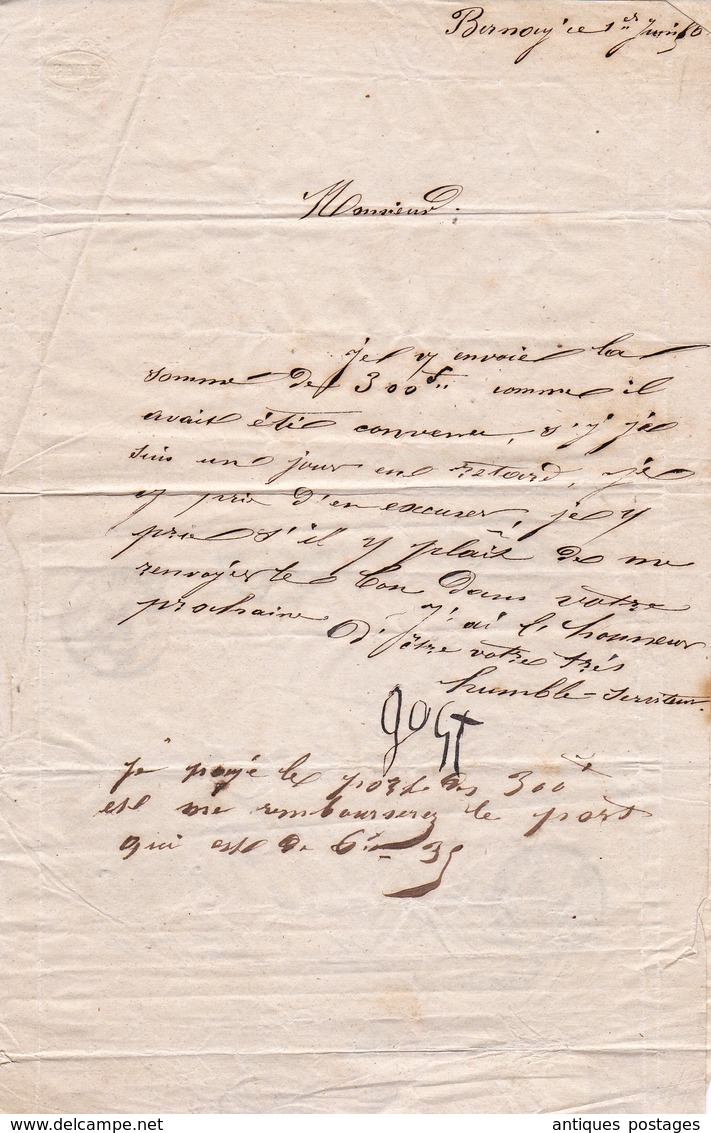 Bernay ce 1er Juin 60
Monsieur.
Je y envoie la
somme de 300 f comme il
avait été convenu, s'y je
suis un jour en retard, je
y prie d'en excuser, je y
prie s'il y plaît de me
renvoyer le bon dans votre
prochaine J'ai l'honneur
d'être votre très
humble serviteur.
je payé le port des 300 f
est me rembourserez le port
qui est de
antiques postages